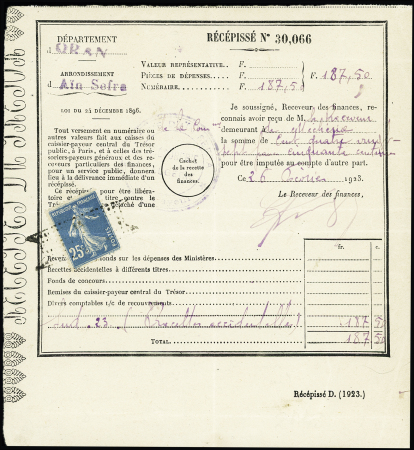 DÉPARTEMENT
ORAN
ARRONDISSEMENT
Aïn Sefra
LOI DU 24 DÉCEMBRE 1896.
Tout versement en numéraire ou
autres valeurs fait aux caisses du
caissier-payeur central du Trésor
public, à Paris, et à celles des tré-
soriers-payeurs généraux et des rece-
veurs particuliers des finances,
pour un service public, donnera
lieu à la délivrance immédiate d'un
récépissé.
Ce récépissé, pour être libéra-
toire contre le Trésor
d'une
RÉCÉPISSÉ N° 30,066
VALEUR REPRÉSENTATIVE. F.
PIÈCES DE DÉPENSES. F.
NUMÉRAIRE. F. 187,50
F. 187,50
Je soussigné, Receveur des finances, re-
connais avoir reçu de M.
demeurant à
la somme de Cent quatre vingt
sept cinquante cent
pour être imputée au compte d'autre part.
Ce 26 1923.
Le Receveur des finances.
Cachet
de la recette
des
finances.
25
fr. c.
fonds sur les dépenses des Ministères
Recettes accidentelles à différents titres
Fonds de concours
Remises du caissier-payeur central du Trésor
Divers comptables t/c de recouvrements
Sud 23 (Recettes accidentelles) 187 50
TOTAL 187 50
Récépissé D. (1923.)